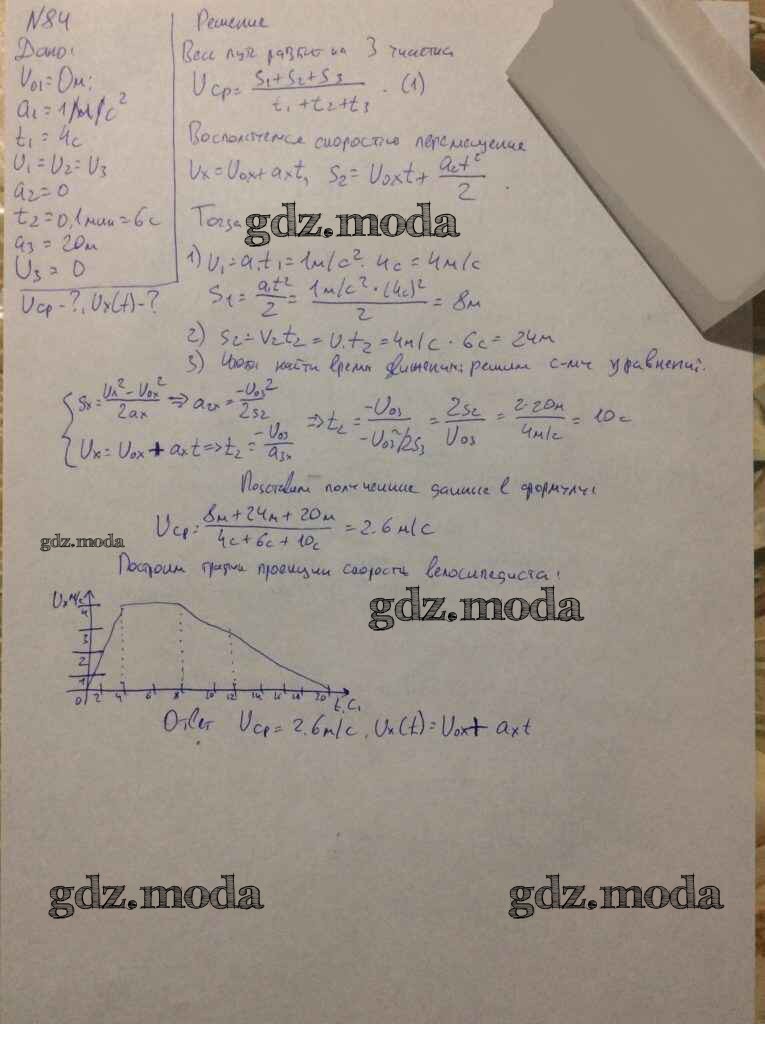 N84
Дано:
V₀₁=0м;
a₁=1м/с²
t₁=4с
V₁=V₂=V₃
a₂=0
t₂=0,1мин=6с
a₃=20м
V₃=0
Vср-?, Vx(t)-?
Решение
Весь путь разбит на 3 участка
Vср= (s₁+s₂+s₃)/(t₁+t₂+t₃) . (1)
скоростью перемещение
Vx=V₀x+axt, S₂=V₀xt+
Тогда
gdz.moda
1) V₁=a₁t₁=1м/с²·4с=4м/с
S₁= a₁t²/2 = 1м/с²·(4с)²/2 = 8м
2) S₂=V₂t₂=V₁t₂=4м/с·6с=24м
3) найти время движения: решим с-му уравнений.
Sx= (Vx²-V₀x²)/2ax ⇒ a₂x= -V₀₃²/2s₂
Vx=V₀x+axt⇒t₂= -V₀₃/a₃x
⇒t₂= -V₀₃/(-V₀₃²/2S₃) = 2s₂/V₀₃ = 2·20м/4м/с = 10с
Подставим полученные данные в формулу:
Vср= (8м+24м+20м)/(4с+6с+10с) =2.6м/с
gdz.moda
Построим график проекции скорость велосипедиста:
gdz.moda
Vx м/с
4
3
2
1
0 2 4 6 8 10 12 14 16 18 20 t,с,
Ответ Vср=2.6м/с, Vx(t)=V₀x+axt
gdz.moda gdz.moda